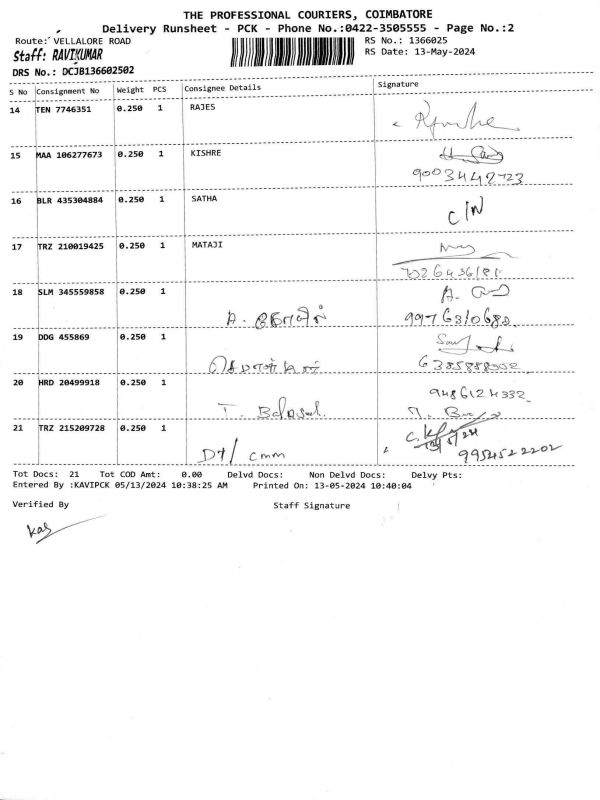 THE PROFESSIONAL COURIERS, COIMBATORE
Delivery Runsheet - PCK - Phone No.:0422-3505555 - Page No.:2
Route: VELLALORE ROAD
RS No.: 1366025
Staff: RAVIKUMAR
RS Date: 13-May-2024
DRS No.: DCJB136602502
S No Consignment No Weight PCS Consignee Details Signature
14 TEN 7746351 0.250 1 RAJES
15 MAA 106277673 0.250 1 KISHRE
16 BLR 435304884 0.250 1 SATHA
C/N
17 TRZ 210019425 0.250 1 MATAJI
18 SLM 345559858 0.250 1
A.
9976310680
19 DDG 455869 0.250 1
20 HRD 20499918 0.250 1
9486124332
T.
21 TRZ 215209728 0.250 1
9954522202
Tot Docs: 21 Tot COD Amt: 0.00 Delvd Docs: Non Delvd Docs: Delvy Pts:
Entered By :KAVIPCK 05/13/2024 10:38:25 AM Printed On: 13-05-2024 10:40:04
Verified By Staff Signature